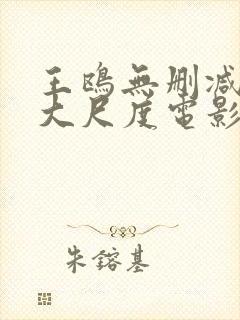 王鴎無刪減
大尺度電影
朱鎔基